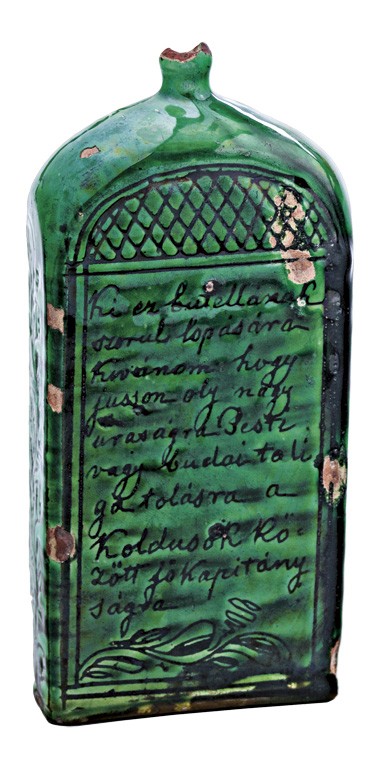 Ki ez butellának
szorul lopására
Kivánom hogy
jusson oly nagy
uraságra Pesti
vagy budai tali
ga tolásra a
Koldusok Kö-
zött főkapitány
ságra